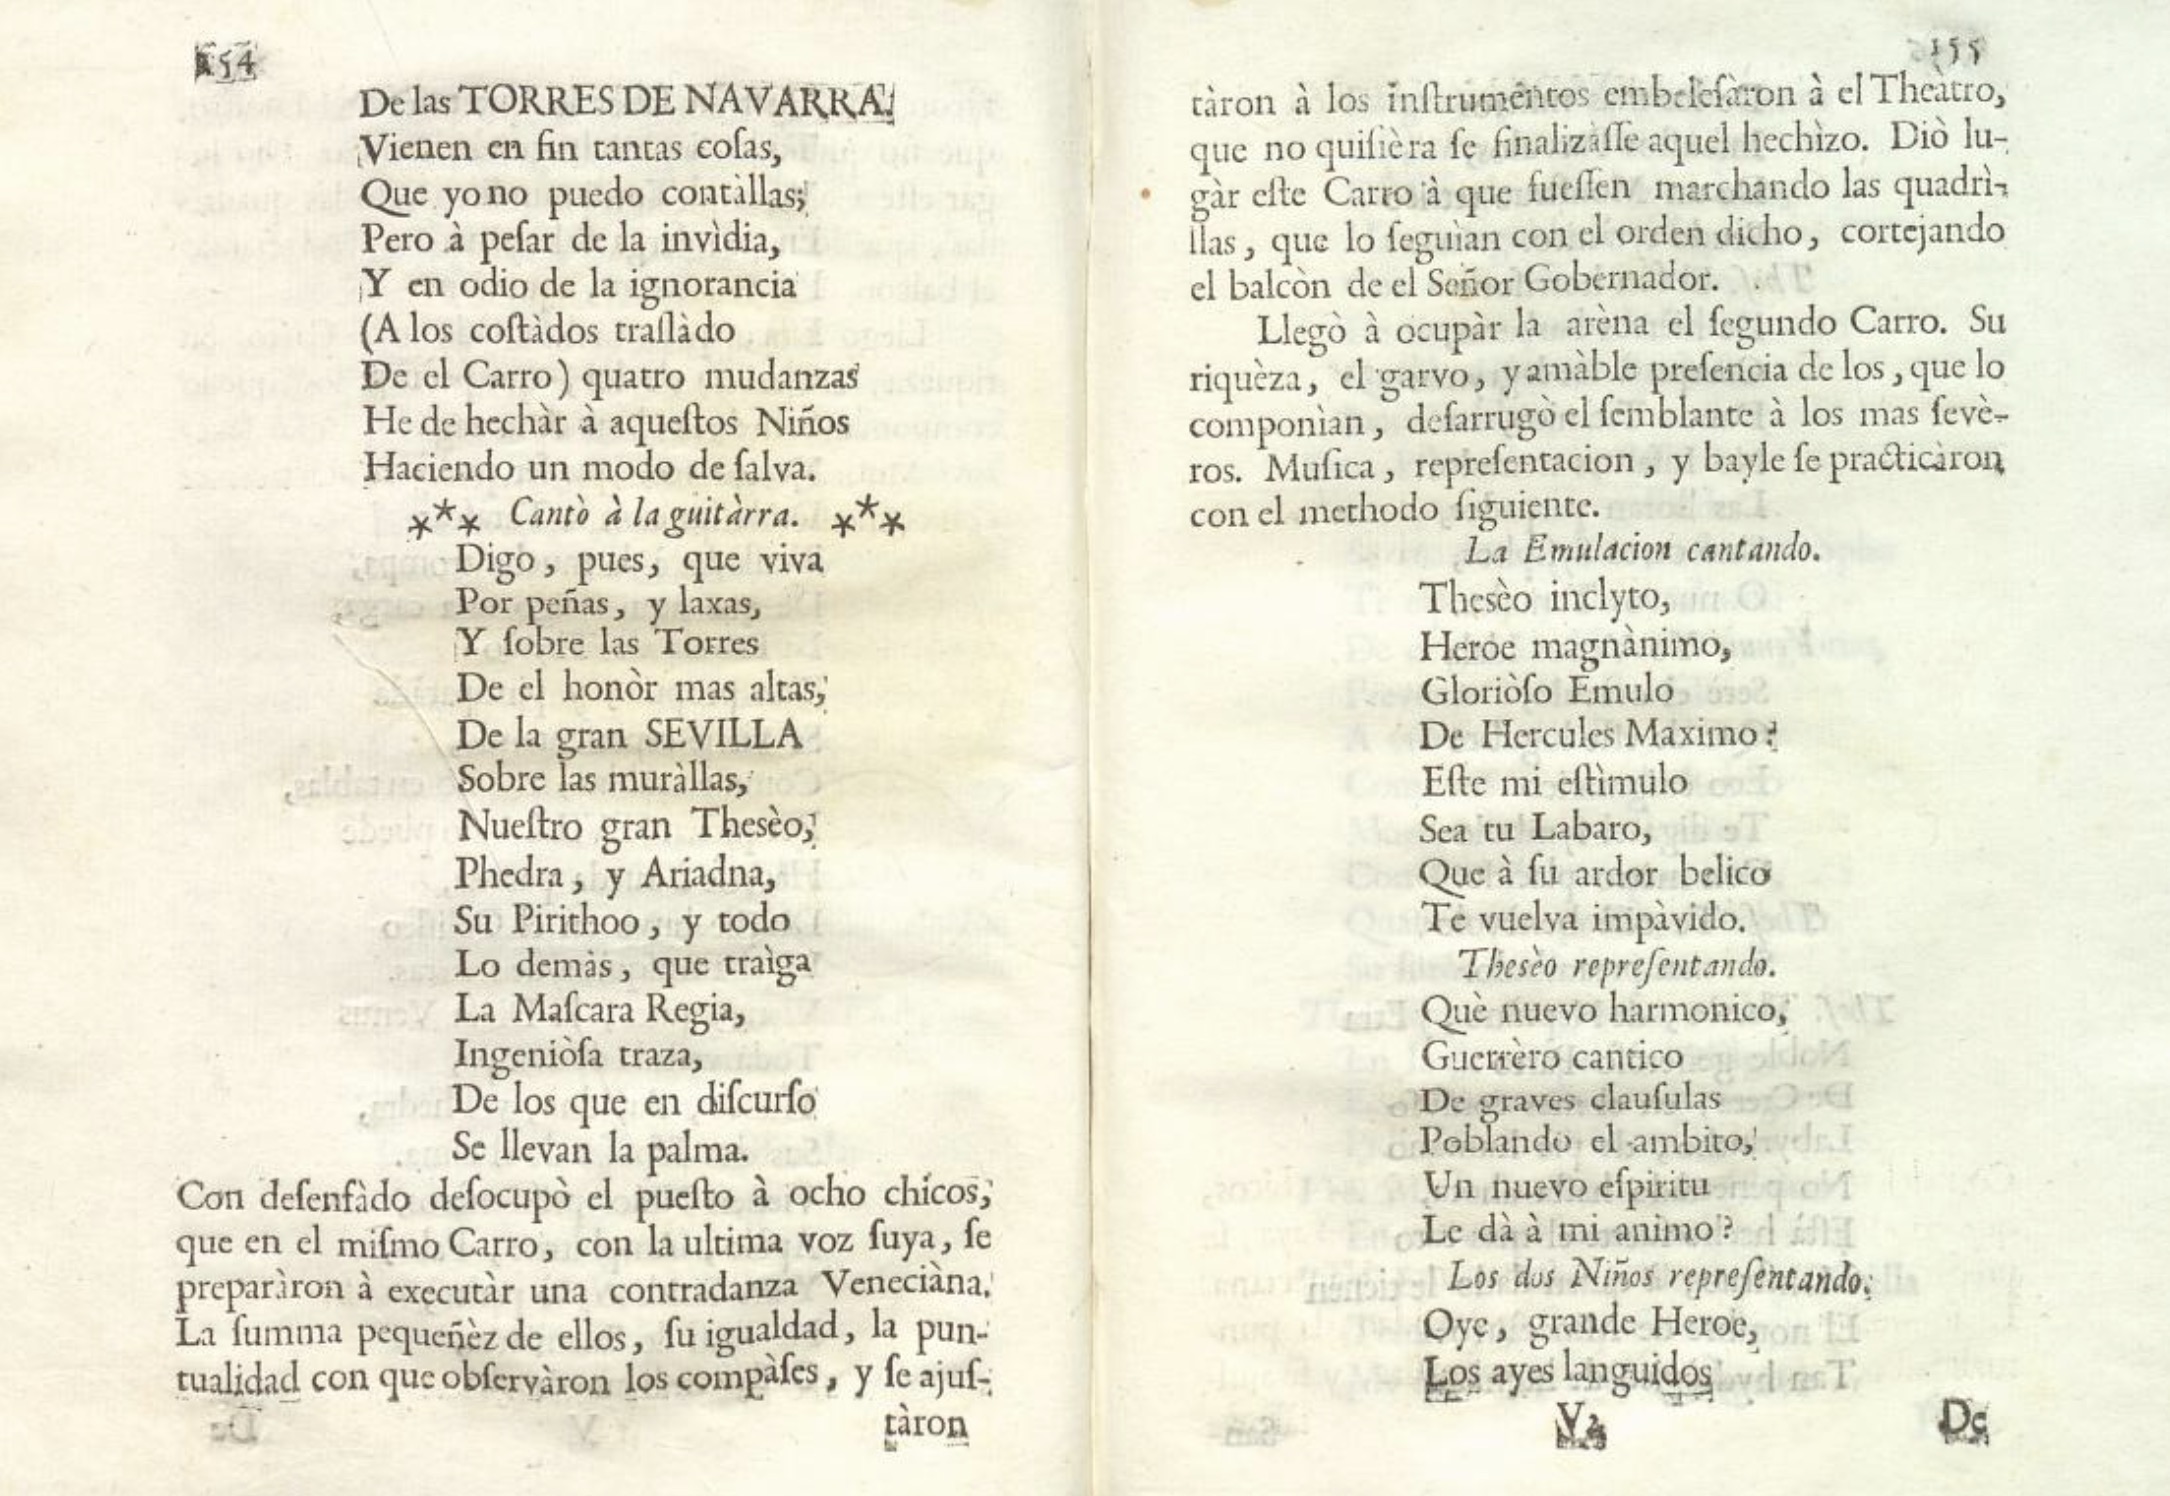 154
De las TORRES DE NAVARRA;
Vienen en fin tantas coſas,
Que yo no puedo contàllas;
Pero à peſar de la invìdia,
Y en odio de la ignorancia
(A los coſtàdos traſlàdo
De el Carro) quatro mudanzas
He de hechàr à aqueſtos Niños
Haciendo un modo de ſalva.
*** Cantò à la guitàrra. ***
Digo, pues, que viva
Por peñas, y laxas,
Y ſobre las Torres
De el honòr mas altas,
De la gran SEVILLA
Sobre las muràllas,
Nueſtro gran Thesèo,
Phedra, y Ariadna,
Su Pirithoo, y todo
Lo demàs, que traìga
La Maſcara Regia,
Ingeniòſa traza,
De los que en diſcurſo
Se llevan la palma.
Con deſenfàdo deſocupò el pueſto à ocho chicos,
que en el miſmo Carro, con la ultima voz ſuya, ſe
preparàron à executàr una contradanza Veneciàna.
La ſumma pequeñèz de ellos, ſu igualdad, la pun-
tualidad con que obſervàron los compàſes, y ſe ajuſ-
tàron
155
tàron à los inſtrumèntos embeleſàron à el Theàtro,
que no quiſièra ſe finalizàſſe aquel hechìzo. Diò lu-
gàr eſte Carro à que fueſſen marchando las quadrì-
llas, que lo ſeguìan con el orden dicho, cortejando
el balcòn de el Señor Gobernador.
Llegò à ocupàr la arèna el ſegundo Carro. Su
riquèza, el garvo, y amàble preſencia de los, que lo
componìan, deſarrugò el ſemblante à los mas ſevè-
ros. Muſica, repreſentacion, y bayle ſe practicàron
con el methodo ſiguiente.
La Emulacion cantando.
Thesèo inclyto,
Heroe magnànimo,
Gloriòſo Emulo
De Hercules Maximo:
Eſte mi eſtìmulo
Sea tu Labaro,
Que à ſu ardor belico
Te vuelva impàvido.
Thesèo repreſentando.
Què nuevo harmonico,
Guerrèro cantico
De graves clauſulas
Poblando el ambito,
Un nuevo eſpiritu
Le dà à mi anìmo?
Los dos Niños repreſentando.
Oye, grande Heroe,
Los ayes languidos
V2 De